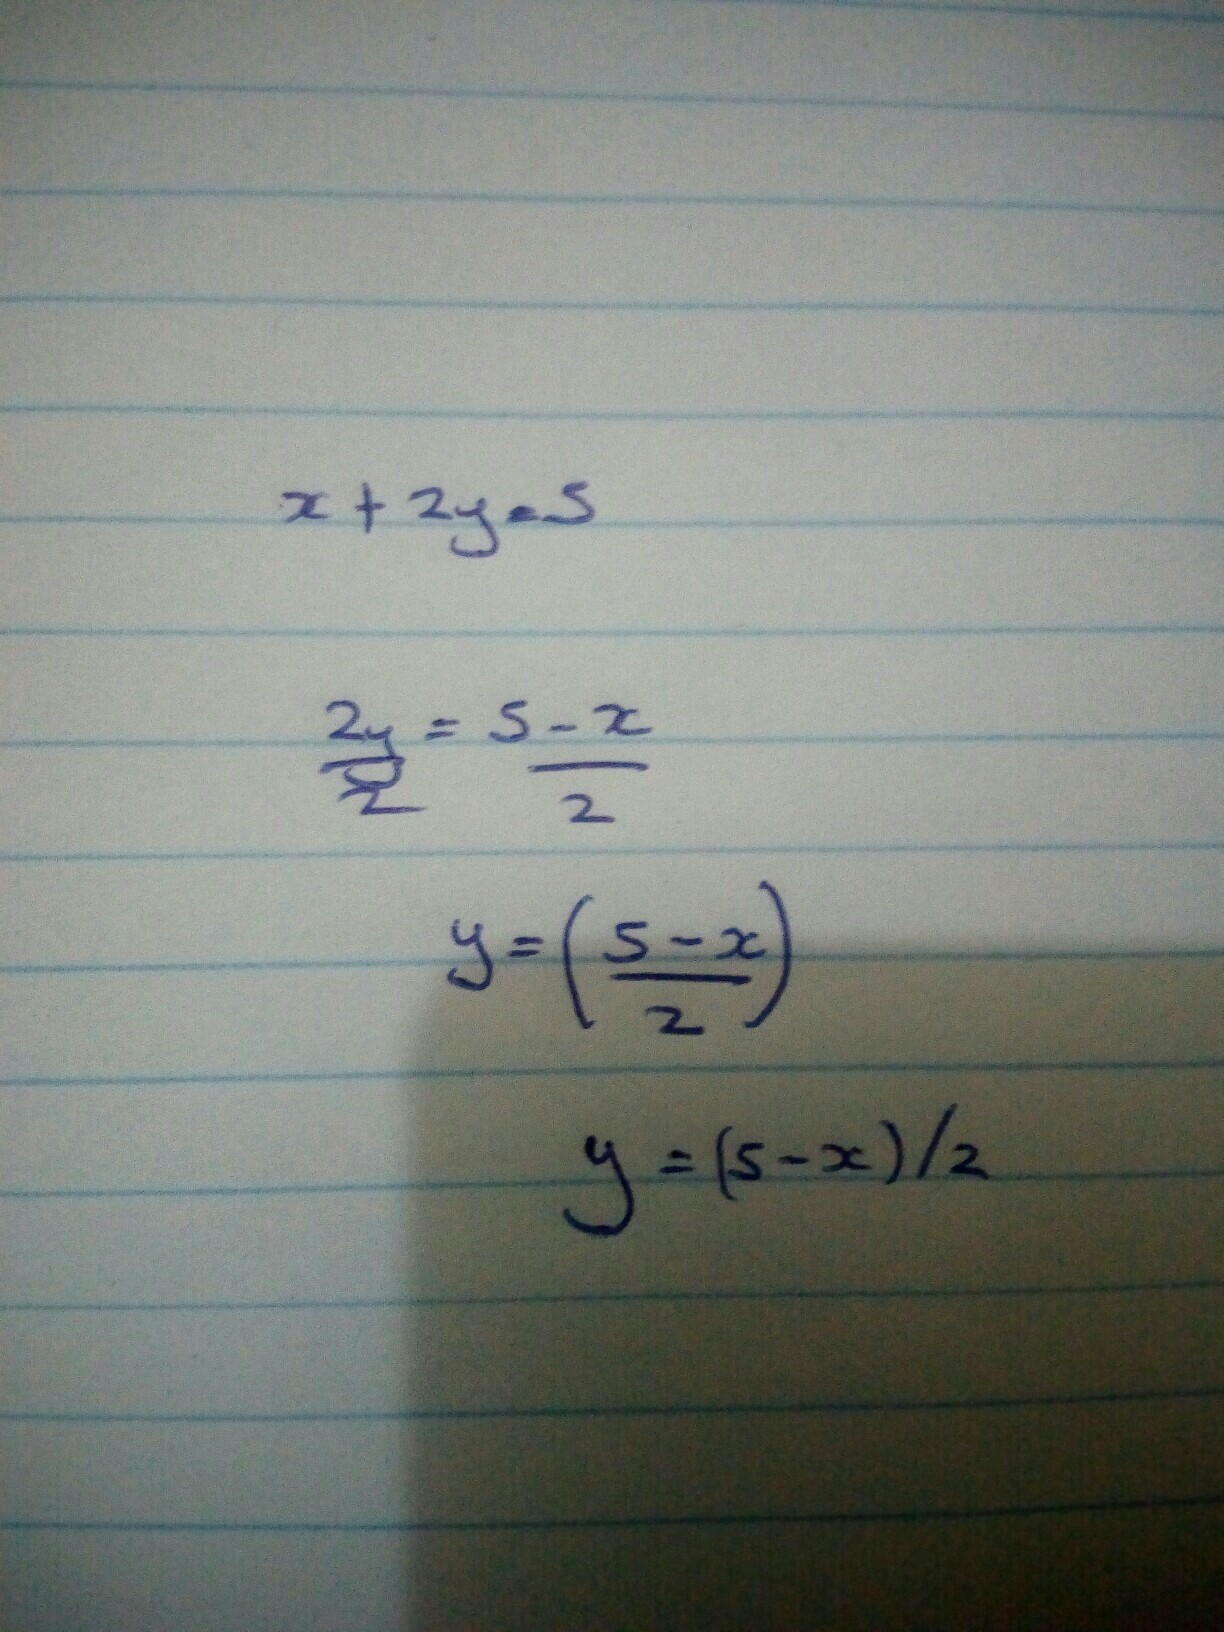 x + 2y = 5
2y/2 = 5 - x/2
y = (5 - x/2)
y = (5 - x)/2